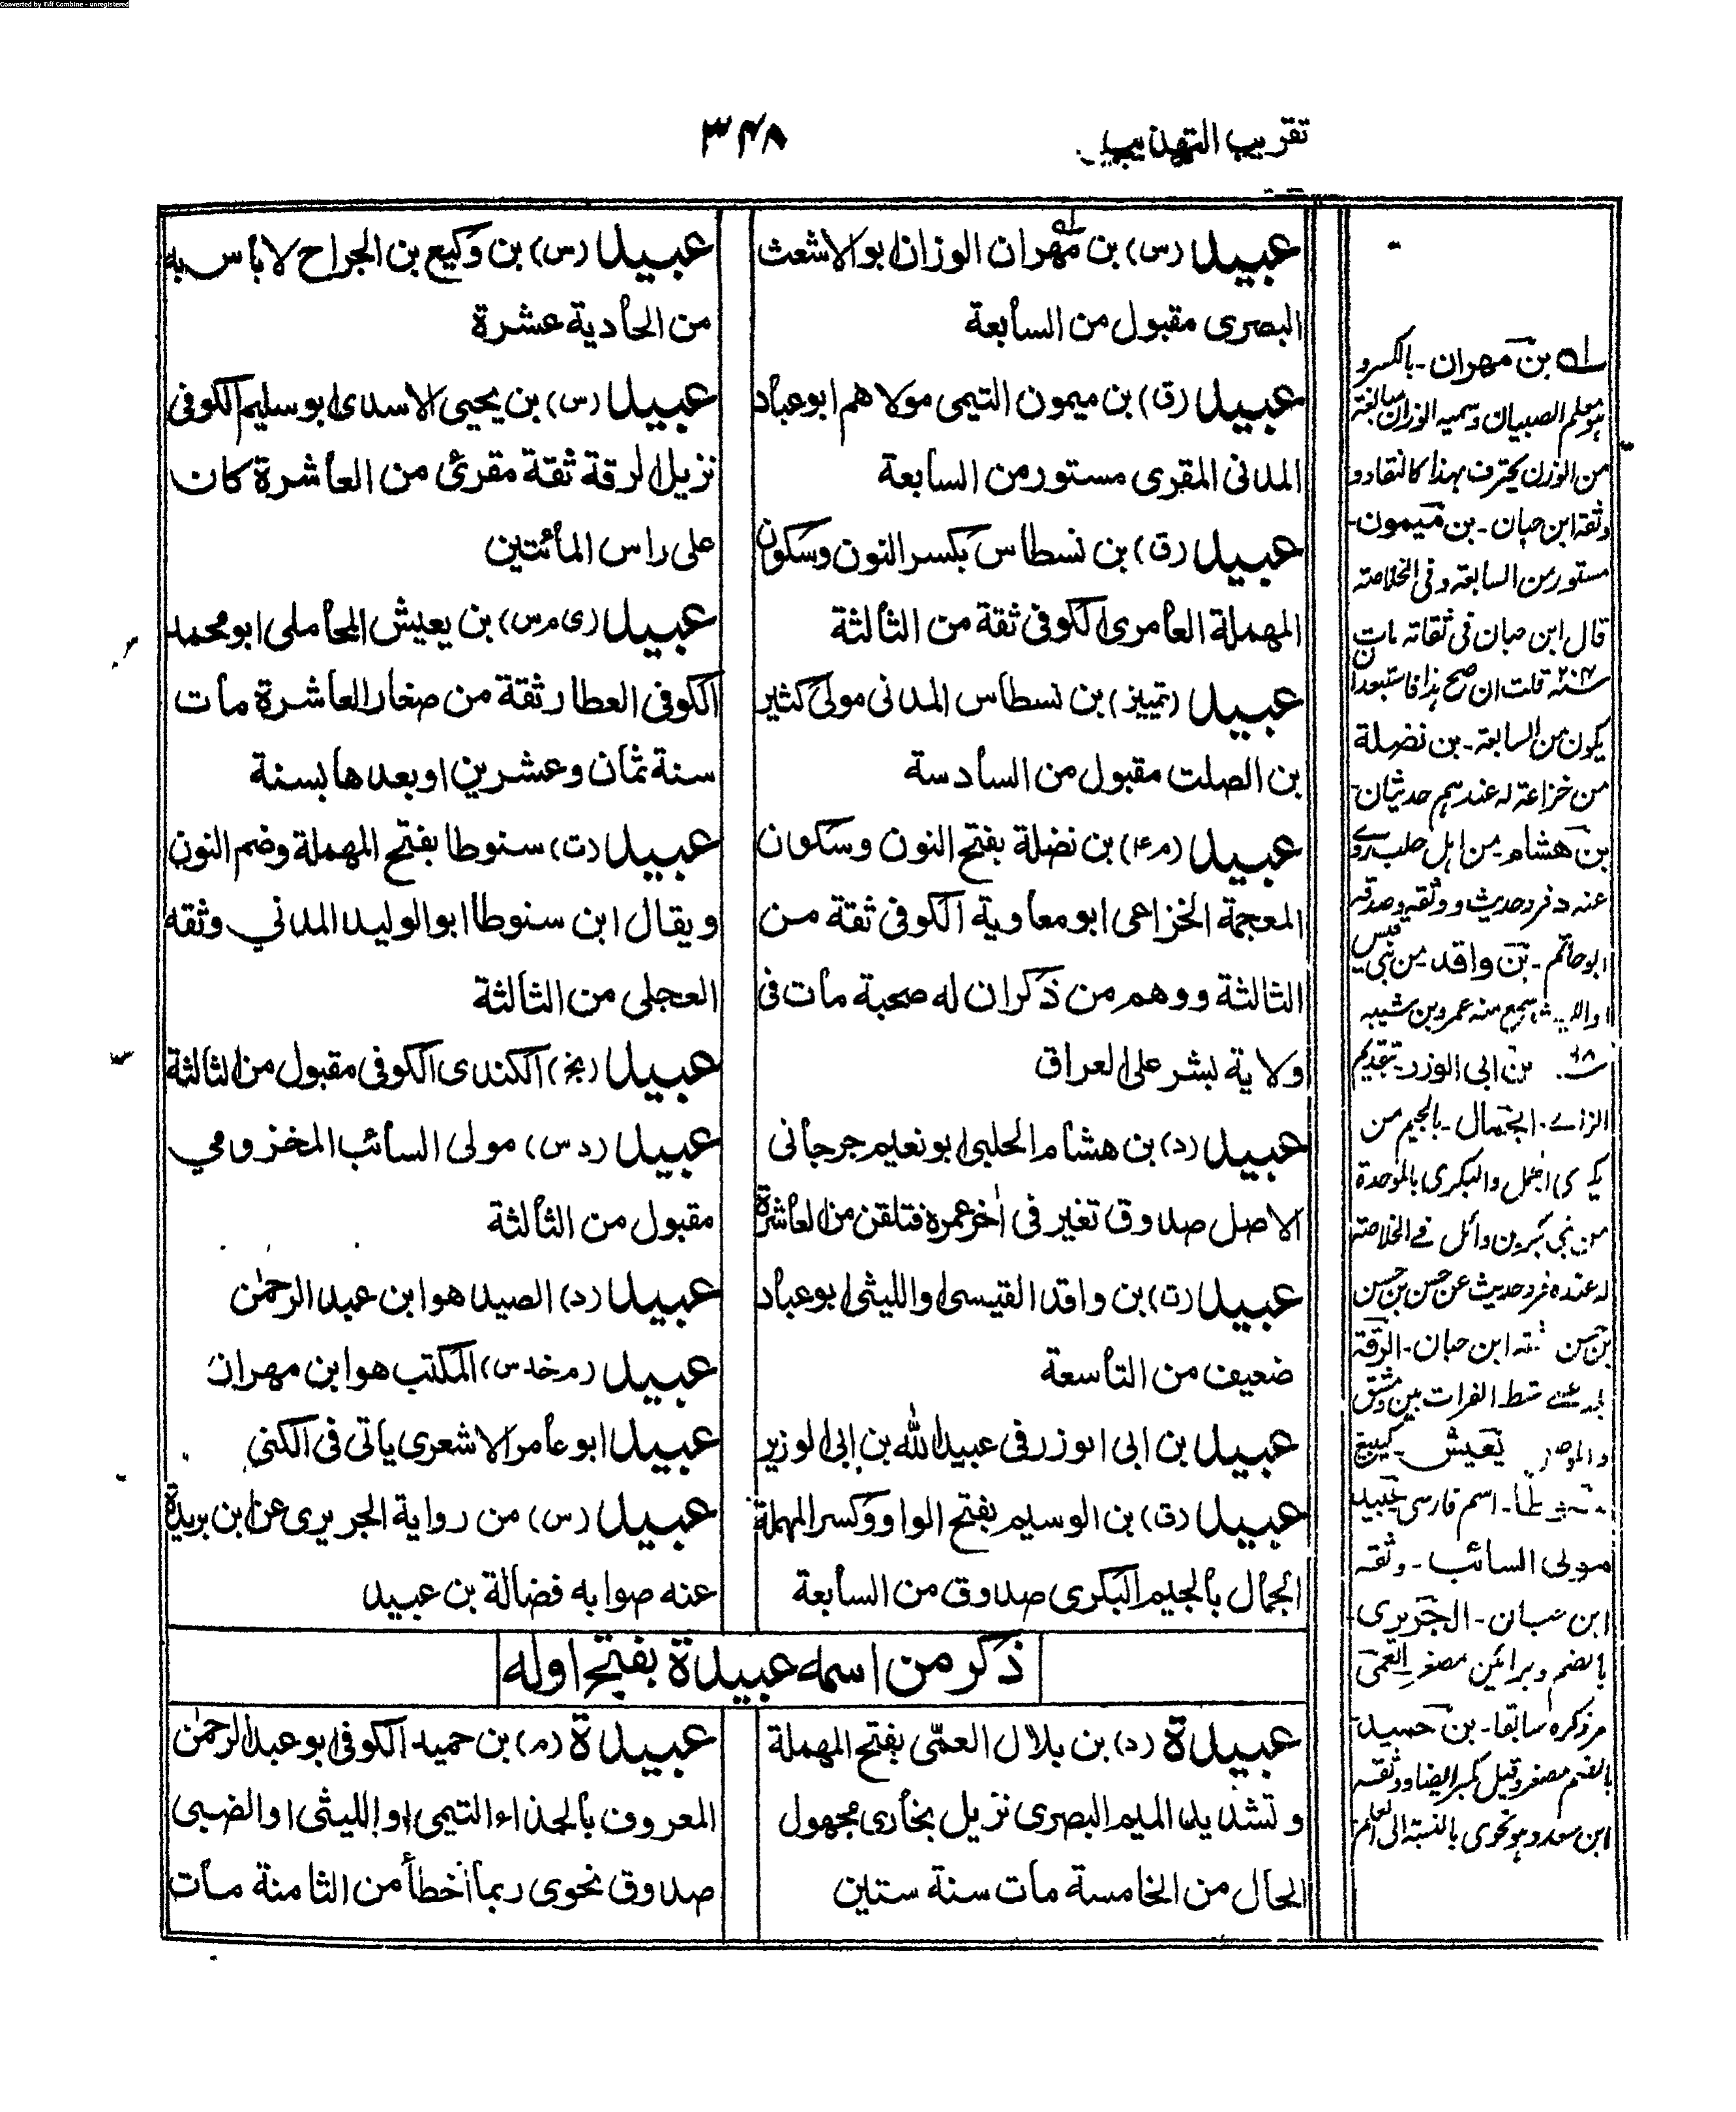 Converted by Tiff Combine - unregistered
تقريب التهذيب
٣٤٨
عبيد (س) بن مهران الوزان ابو الاشعث
البصرى مقبول من السابعة
عبيد (ق) بن ميمون التيمى مولاهم ابو عباد
المدنى المقرى مستور من السابعة
عبيد (ق) بن نسطاس بكسر النون وسكون
المهملة العامرى الكوفى ثقة من الثالثة
عبيد (تمييز) بن نسطاس المدنى مولى كثير
بن الصلت مقبول من السادسة
عبيد (م ٤) بن نضلة بفتح النون وسكون
المعجمة الخزاعى ابو معاوية الكوفى ثقة من
الثالثة ووهم من ذكر ان له صحبة مات فى
ولاية بشر على العراق
عبيد (د) بن هشام الحلبى ابو نعيم جرجانى
الاصل صدوق تغير فى أخر عمره فتلقن من العاشرة
عبيد (ت) بن واقد القيسى او الليثى ابو عباد
ضعيف من التاسعة
عبيد بن ابى الوزر فى عبيد الله بن ابى الوزير
عبيد (ق) بن الوسيم بفتح الواو وكسر المهملة
الجمال بالجيم البكرى صدوق من السابعة
عبيد (س) بن وكيع بن الجراح لا بأس به
من الحادية عشرة
عبيد (س) بن يحيى الاسدى ابو سليم الكوفى
نزيل الرقة ثقة مقرئ من العاشرة كان
على راس المائتين
عبيد (ى م س) بن يعيش المحاملى ابو محمد
الكوفى العطار ثقة من صغار العاشرة مات
سنة ثمان وعشرين او بعدها بسنة
عبيد (ت) سنوطا بفتح المهملة وضم النون
ويقال ابن سنوطا ابو الوليد المدني وثقه
العجلى من الثالثة
عبيد (بخ) الكندى الكوفى مقبول من الثالثة
عبيد (د س) مولى السائب المخزومي
مقبول من الثالثة
عبيد (د) الصيد هو ابن عبد الرحمٰن
عبيد (م خد س) المكتب هو ابن مهران
عبيد ابو عامر الاشعرى ياتى فى الكنى
عبيد (س) من رواية الجريرى عن ابن بريدة
عنه صوابه فضالة بن عبيد
ذكر من اسمه عبيدة بفتح اوله
عبيدة (د) بن بلال العمّى بفتح المهملة
وتشديد الميم البصرى نزيل بخارى مجهول
الحال من الخامسة مات سنة ستين
عبيدة (م) بن حميد الكوفى ابو عبد الرحمٰن
المعروف بالحذاء التيمى او الليثى او الضبى
صدوق نحوى ربما أخطأ من الثامنة مات
له بن مهران - بالكسر و
هو معلم الصبيان وسميه الوزان مبالغة
من الوزن يحترف بهذا كالنقاد و
وثقه ابن حبان - بن ميمون -
مستور من السابعة وفى الخلاصة
قال ابن حبان فى ثقاته مات
سنة ٢٠٤ قلت ان صح هذا فاستبعد ان
يكون من السابعة - بن نضلة
من خزاعة له عندهم حديثان -
بن هشام من اهل حلب روى
عنه د فرد حديث ووثقه وصدقه
ابو حاتم - بن واقد من بنى قيس
او الليث سمع منه عمرو بن شيبه
بن ابى الوزر - بتقديم
الزاے - الجمال - بالجيم من
اجمل والبكرى بالموحدة
من بنى بكر بن وائل فے الخلاصة
له عنده فرد حديث عن حسن بن حسن
ابن حبان - الرقة
شط الفرات بين دمشق
يعيش
اسم فارسى عبيد
مولى السائب - وثقه
ابن حبان - الجريرى
بالضم وبرائين مصغر العمى
مر ذكره سابقا - بن حميد
بالضم مصغر وقيل كبر ايضا ووثقه
ابن سعد وهو نحوى بالنسبة الى العلم